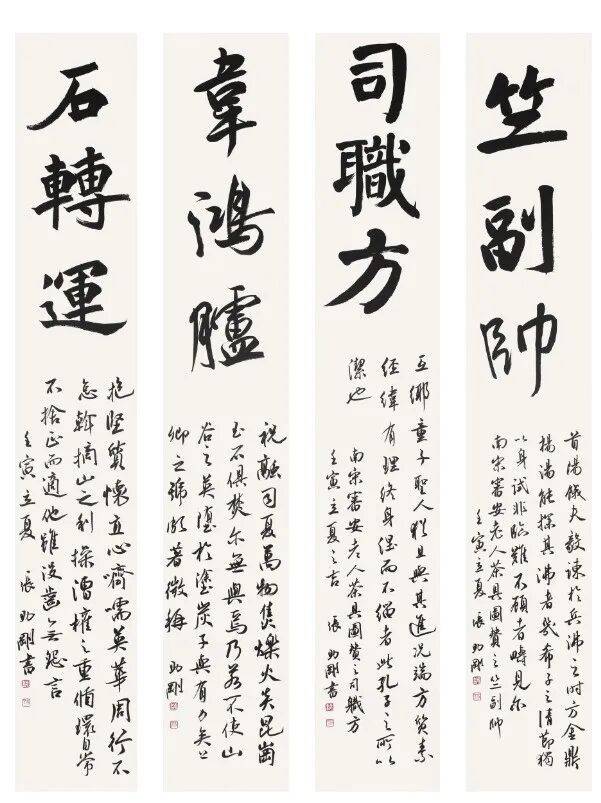 竺副帥
首陽餓夫毅諫於兵沸之時方金鼎
揚湯能探其沸者幾希子之清節獨
以身試非臨難不顧者疇見尔
南宋審安老人茶具圖贊之竺副帥
壬寅立夏 張剛
司職方
互鄉童子聖人猶且與其進況端方質素
經緯有理終身涅而不緇者此孔子之所以
潔也
南宋審安老人茶具圖贊之司職方
壬寅立夏之吉 張剛書
韋鴻臚
祝融司夏萬物焦爍火炎昆崗
玉石俱焚尔無與焉乃若不使山
谷之英墮於塗炭子與有力矣上
卿之號頗著微稱 剛
石轉運
抱堅質懷直心嚌嚅英華周行不
怠斡摘山之利操漕權之重循環自常
不捨正而適他雖沒齒無怨言
壬寅立夏 張剛書